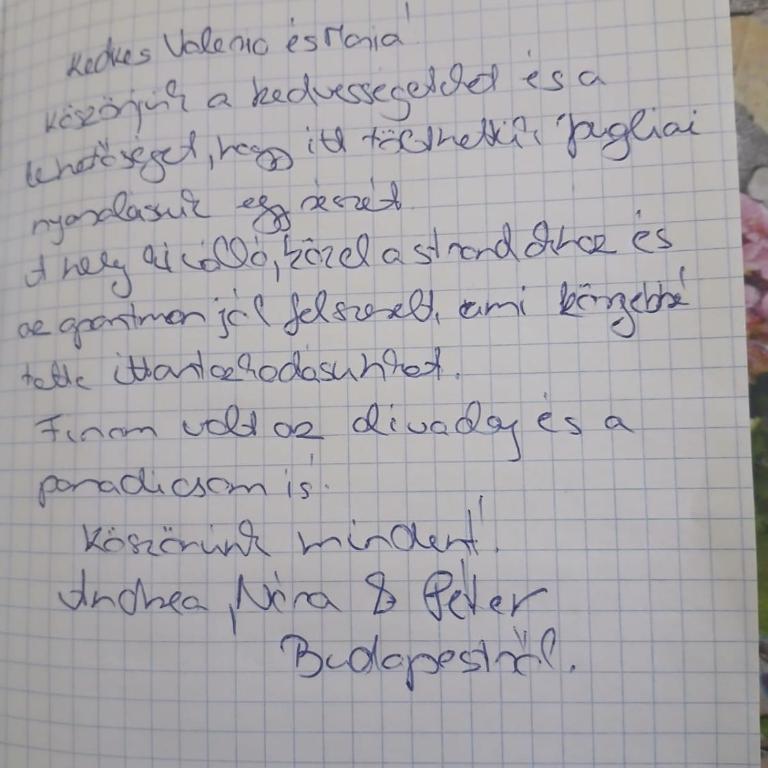 Kedves Valerio és Maria!
Köszönjük a kedvességeteket és a
lehetőséget, hogy itt tölthettük pugliai
nyaralásunk egy részét.
A hely kiváló, közel a strandokhoz és
az apartman jól felszerelt, ami
tette ittartózkodásunkat.
Finom volt az olivaolaj és a
paradicsom is.
Köszönünk mindent!
Andrea, Nóra & Péter
Budapestről.